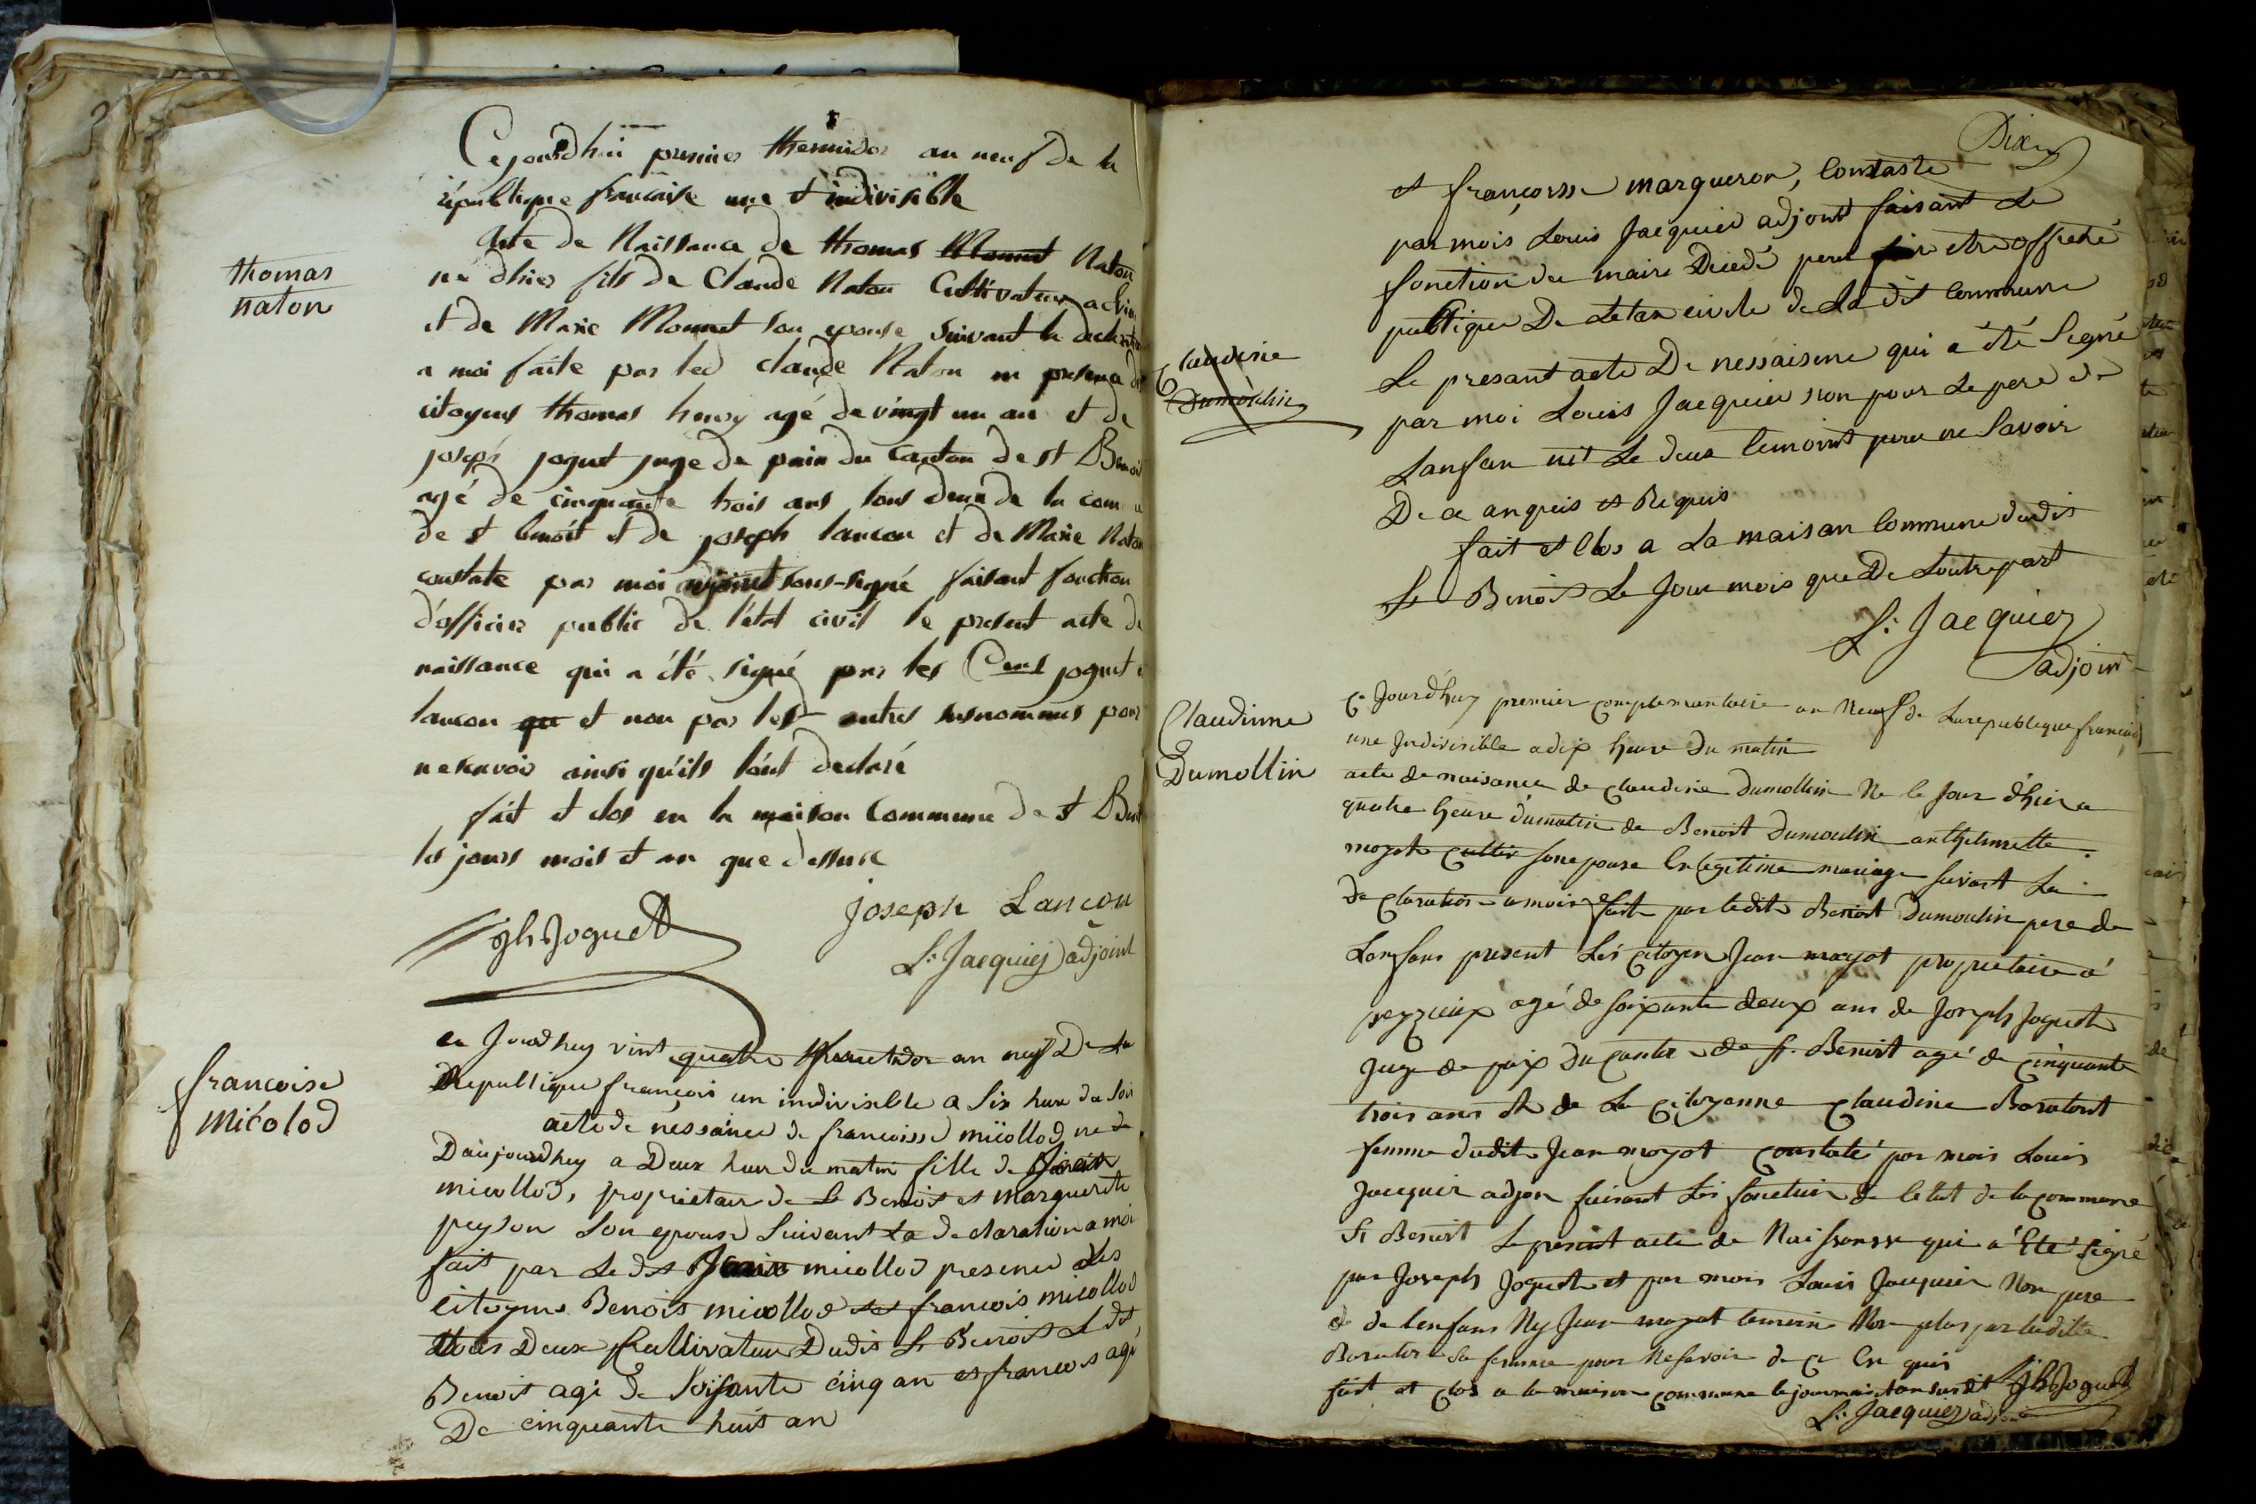 Cejourd'hui premier thermidor an neuf de la
république française une et indivisible
thomas
naton
Acte de Naissance de thomas Monnet Naton
né d'hier fils de Claude Naton Cultivateur
et de Marie Monnet son epouse suivant la
a moi faite par led claude Naton en presence
citoyens thomas henry agé de vingt un an et de
joseph joguet juge de paix du Canton de st
agé de cinquante trois ans tous deux de la
de st benoit et de joseph lancon et de Marie
constate par moi adjoint sous-signé faisant fonction
d'officier public de l'état civil le present acte de
naissance qui a été signé par les Cens joguet
lancon que et non par les autres susnommés pour
ne savoir ainsi qu'ils l'ont declaré
fait et clos en la maison commune de st
les jours mois et an que dessus
jh Joguet
joseph Lancon
L. Jacquier adjoint
francoise
micolod
ce Jourdhuy vint quatre fructidor an neuf De La
Republique francois un indivisible a six hure du soir
acte de nessance de francoisse micollod ne de
Daujourdhuy a Deux hure du matin fille de
micollod, proprietair de St Benois et marguerite
peyson son epouse suivant La declaration a moi
fait par Le dit micollod presence des
citoyens Benois micollod et francois micollod
tous Deux Cultivateur Dudis St Benois Le dit
Benois agé de soisante cinq an et francois agé
De cinquante huit an
Dix
et francoisse margueron, Constaste
par mois Louis Jacquier adjont faisant Le
fonction du maire Decedé pour etre officié
publique De Letax civile de La dit Commune
Le presant acte De nessaisene qui a été Segné
par moi Louis Jacquier non pour Le pere de
Lanfan nit Le deux temoins pour ne Savoir
De ce anquis et Requis
fait et Clos a La maison Commune dudis
St Benois Le Jour mois que De Loutrepart
L. Jacquier
adjoint
claudine
Dumoulin
Claudinne
Dumollin
Ce Jourdhuy premier complementaire an Neuf de Larepublique francois
une Indivisible a dix heure du matin
acte de naisance de claudine Dumollin Ne le Jour d'hier a
quatre heure du matin de Benoit Dumoulin
moyot cultiv son epouse En legitime mariage suivant La
declaration a mois fait par ledit Benoit Dumoulin pere de
Lenfans present Les Citoyen Jean moyot proprietaire a
peyzieux agé de soixante deux ans de Joseph Joguet
Juge de paix du canton de st. Benoit agé de cinquante
trois ans et de La Citoyenne claudine
femme dudit Jean moyot constaté par mois Louis
Jacquier adjon faisant Les fonction de letat de la commune
St Benoit Le present acte de Naissansse qui a Eté signé
par Joseph Joguet et par mois Louis Jacquier Non pere
de lenfans Ny Jean moyot temoin Non plus par ladite
sa femme pour Ne savoir de ce En quis
fait et clos a la maison commune le jour mois et an susdit Jh Joguet
L. Jacquier adjoint